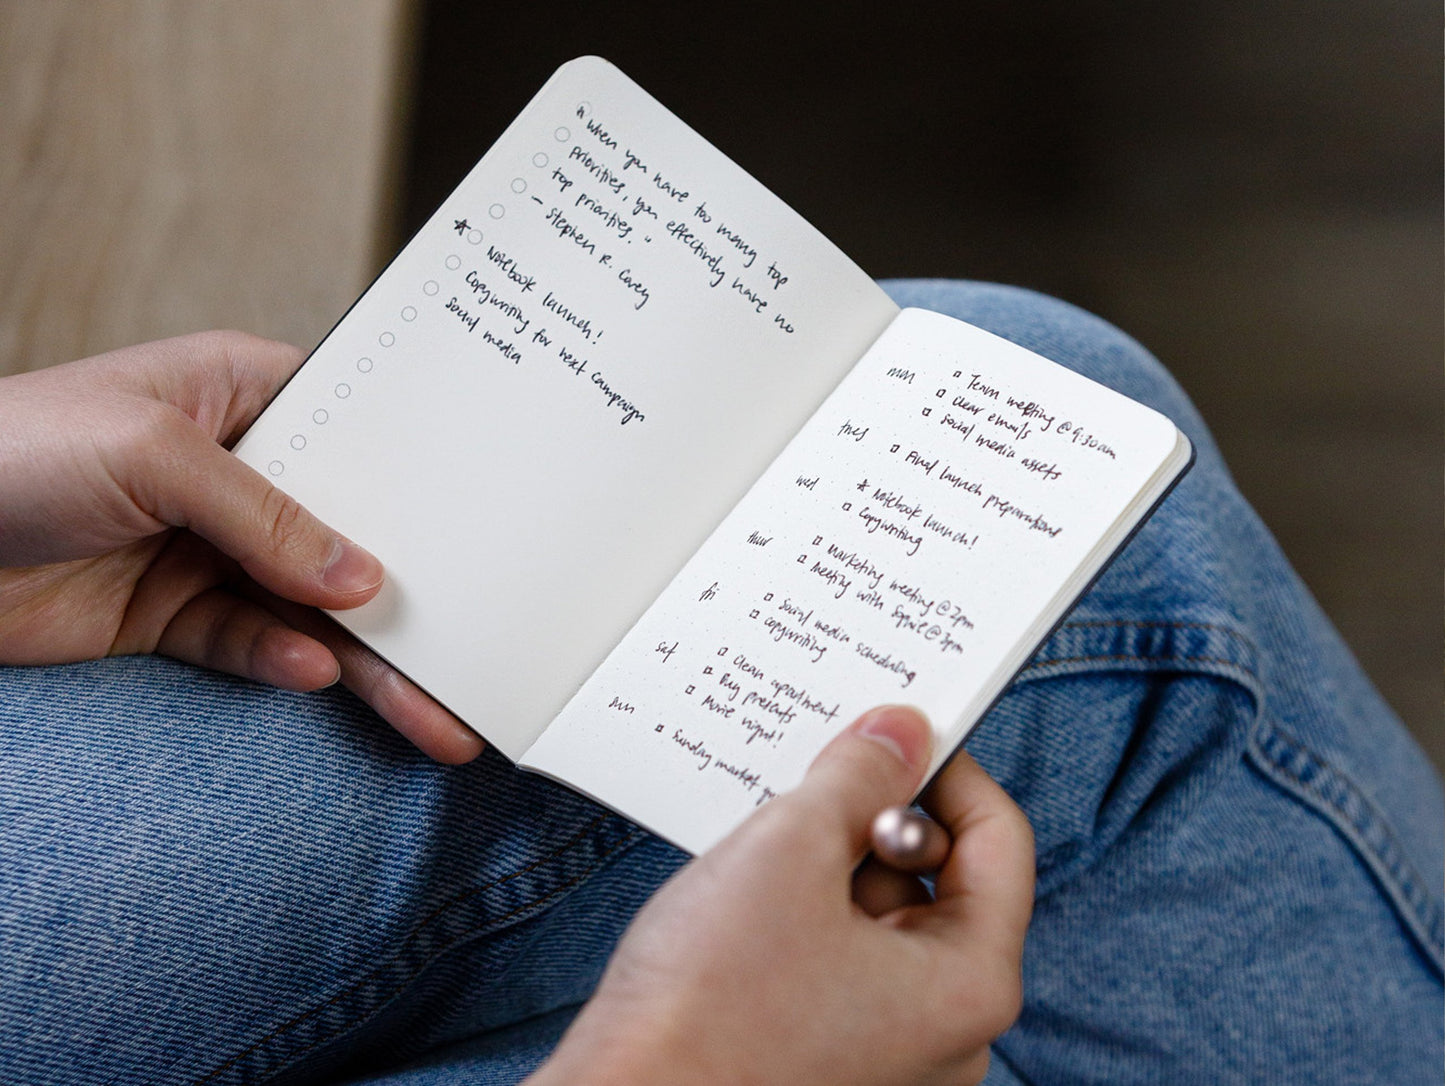 "when you have too many top
priorities, you effectively have no
top priorities."
- Stephen R. Covey
★ Notebook launch!
Copywriting for next campaign
social media
mon
Team meeting @ 9:30am
clear emails
social media assets
tues
Final launch preparations
wed
★ Notebook launch!
copywriting
thur
marketing meeting @ 2pm
meeting with Sophie @ 3pm
fri
social media scheduling
copywriting
sat
Clean apartment
Buy presents
Movie night!
sun
Sunday market